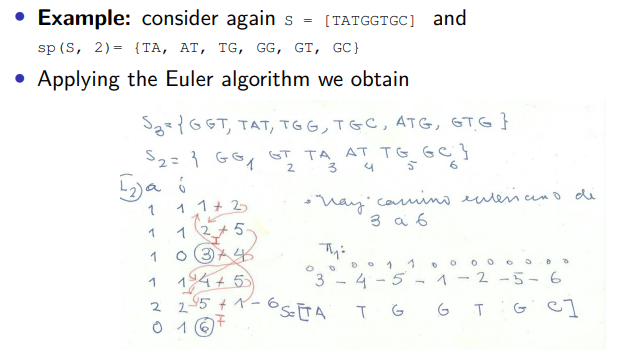 • Example: consider again S = [TATGGTGC] and
sp(S, 2)= {TA, AT, TG, GG, GT, GC}
• Applying the Euler algorithm we obtain
S3={GGT, TAT, TGG, TGC, ATG, GTG}
S2={GG, GT, TA, AT, TG, GC}
1 2 3 4 5 6
a i
1 1 1 → 2
1 1 2 → 5
1 0 3 → 4
1 1 4 → 5
2 2 5 → 1 - 6
0 1 6 F
• Hay camino euleriano de
3 a 6
Π1:
0 0 0 0 1 1 0 0 0 0 0 0 0
3 - 4 - 5 - 1 - 2 - 5 - 6
S=[TA T G G T G C]